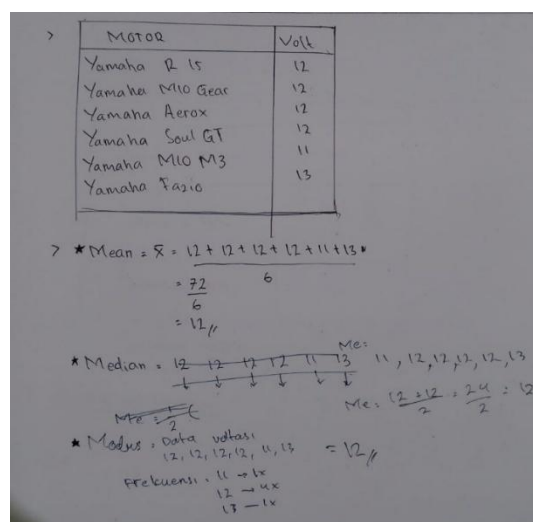 > MOTOR Volt
Yamaha R 15 12
Yamaha M10 Gear 12
Yamaha Aerox 12
Yamaha Soul GT 12
Yamaha M10 M3 11
Yamaha Fazio 13
> ★ Mean = x̄ = 12 + 12 + 12 + 12 + 11 + 13
6
= 72
6
= 12 //
Me =
★ Median = 12 12 12 12 11 13 11, 12, 12, 12, 12, 13
Me = 12 + 12 = 24 = 12
2 2
Me =
2
★ Modus = Data voltasi
12, 12, 12, 12, 11, 13 = 12 //
Frekuensi = 11 → 1x
12 → 4x
13 — 1x